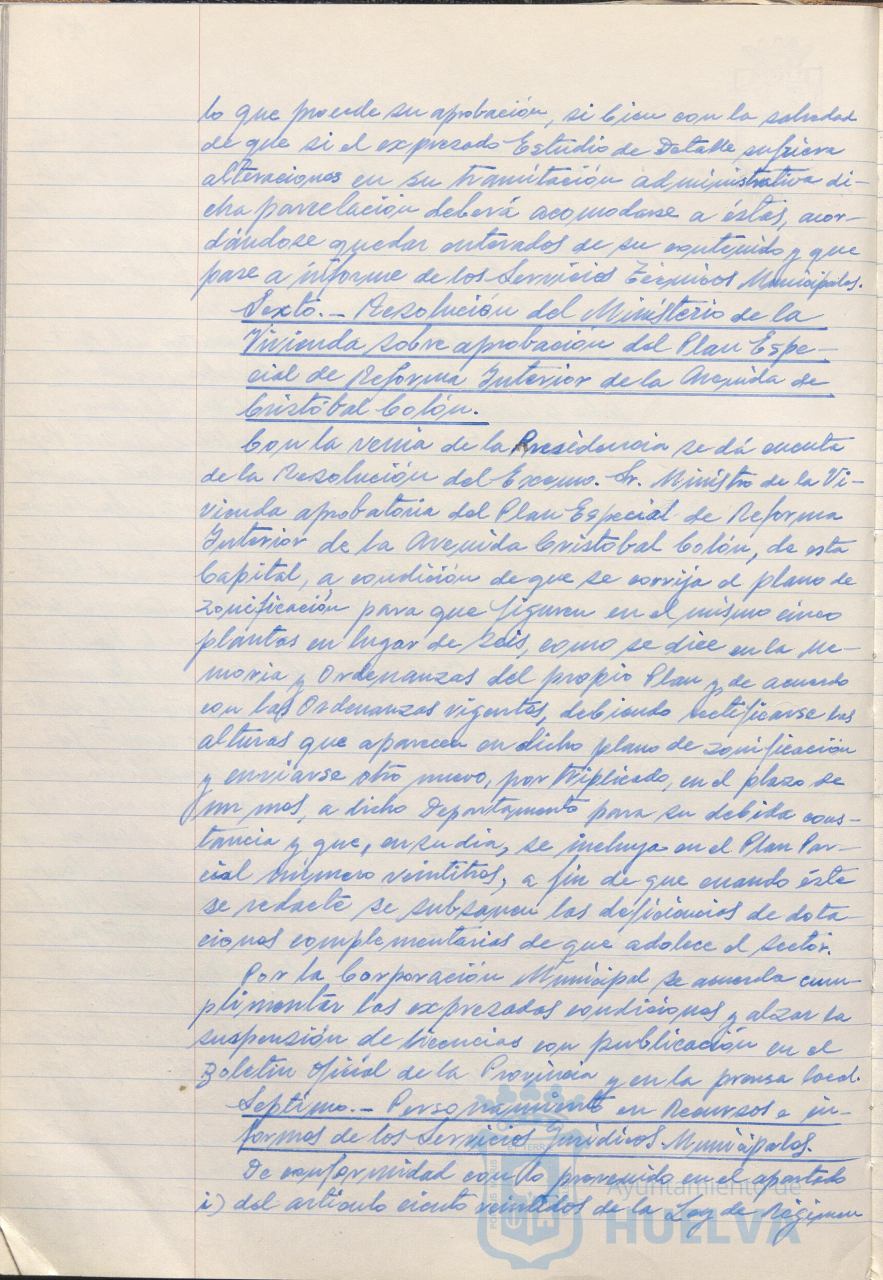 lo que procede su aprobación, si bien con la salvedad
de que si el expresado Estudio de Detalle sufriera
alteraciones en su tramitación administrativa di-
cha parcelación deberá acomodarse a éstas, acor-
dándose quedar enterados de su contenido y que
pase a informe de los Servicios Técnicos Municipales.
Sexto.- Resolución del Ministerio de la
Vivienda sobre aprobación del Plan Espe-
cial de Reforma Interior de la Avenida de
Cristóbal Colón.
Con la venia de la Presidencia se dá cuenta
de la Resolución del Excmo. Sr. Ministro de la Vi-
vienda aprobatoria del Plan Especial de Reforma
Interior de la Avenida Cristobal Colón, de esta
Capital, a condición de que se corrija el plano de
zonificación para que figuren en el mismo cinco
plantas en lugar de seis, como se dice en la Me-
moria y Ordenanzas del propio Plan y de acuerdo
con las Ordenanzas vigentes, debiendo rectificarse las
alturas que aparecen en dicho plano de zonificación
y enviarse otro nuevo, por triplicado, en el plazo de
un mes, a dicho Departamento para su debida cons-
tancia y que, en su dia, se incluya en el Plan Par-
cial número veintitres, a fin de que cuando éste
se redacte se subsanen las deficiencias de dota-
ciones complementarias de que adolece el sector.
Por la Corporación Municipal se acuerda cum-
plimentar las expresadas condiciones y alzar la
suspensión de licencias con publicación en el
Boletín Oficial de la Provincia y en la prensa local.
Septimo.- Personamiento en Recursos e in-
formes de los Servicios Jurídicos Municipales.
De conformidad con lo prevenido en el apartado
i) del artículo ciento veintidos de la Ley de Régimen
Ayuntamiento de
HUELVA